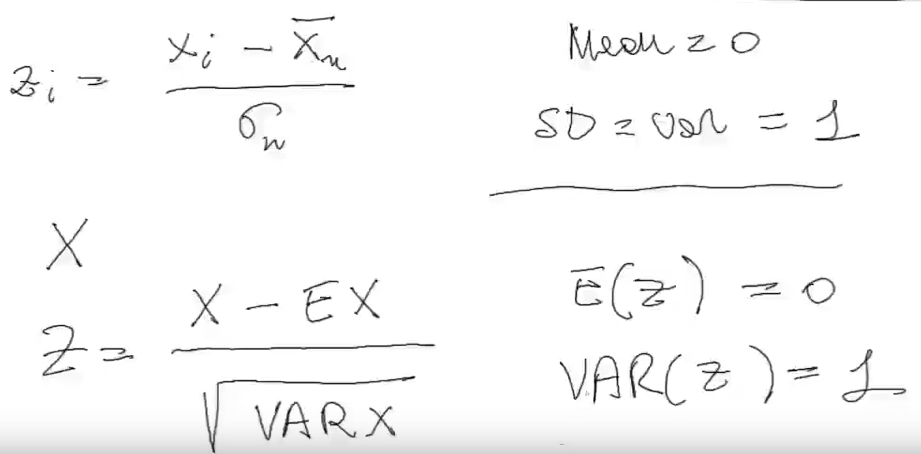 z_i = (x_i − x̄_n) / σ_n
Mean = 0
SD = Var = 1
X
Z = (X − EX) / √(VAR X)
E(z) = 0
VAR(z) = 1